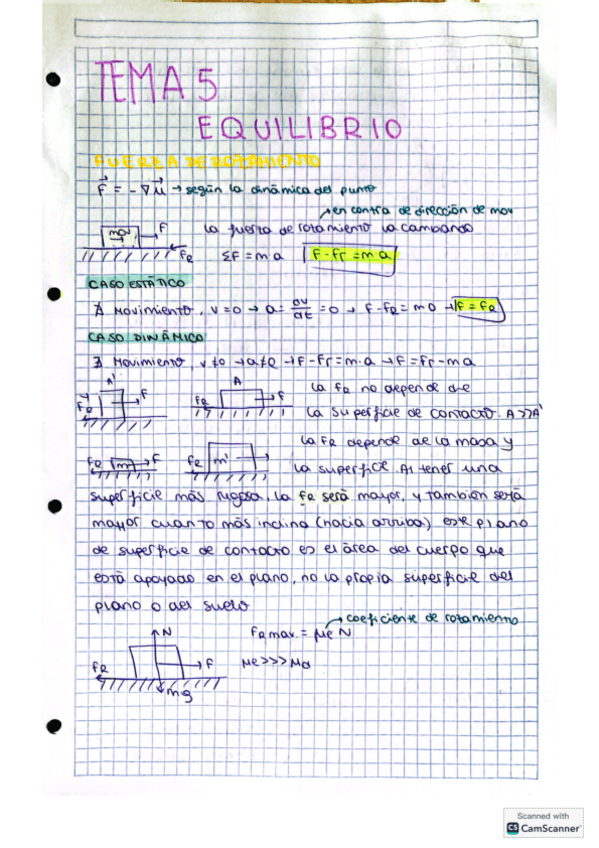 TEMA 5
EQUILIBRIO
FUERZA DE ROZAMIENTO
F⃗ = - ∇μ⃗ → según la dinámica del punto
→ en contra de dirección de mov
mov → F
FR
la fuerza de rozamiento va cambando
ΣF = m·a
F - Fr = m·a
CASO ESTÁTICO
∄ Movimiento, v = 0 → a = dv/dt = 0 → F - FR = m·0 → F = FR
CASO DINÁMICO
∃ Movimiento, v ≠ 0 → a ≠ 0 → F - Fr = m·a → F = Fr - m a
A' F FR
A F FR
la FR no depende de
la superficie de contacto. A>>A'
FR m F
FR m'
la FR depende de la masa y
la superficie. Al tener una
superficie más rugosa, la FR será mayor, y también será
mayor cuanto más inclina (hacia arriba) este plano
de superficie de contacto es el área del cuerpo que
está apoyado en el plano, no la propia superficie del
plano o del suelo
→ coeficiente de rozamiento
FR max. = μe N
N
FR F
mg
μe >>> μd
Scanned with
CS CamScanner